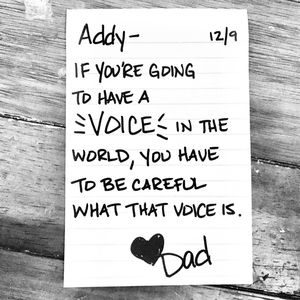 Addy- 12/9
IF YOU'RE GOING
TO HAVE A
VOICE IN THE
WORLD, YOU HAVE
TO BE CAREFUL
WHAT THAT VOICE IS.
Dad